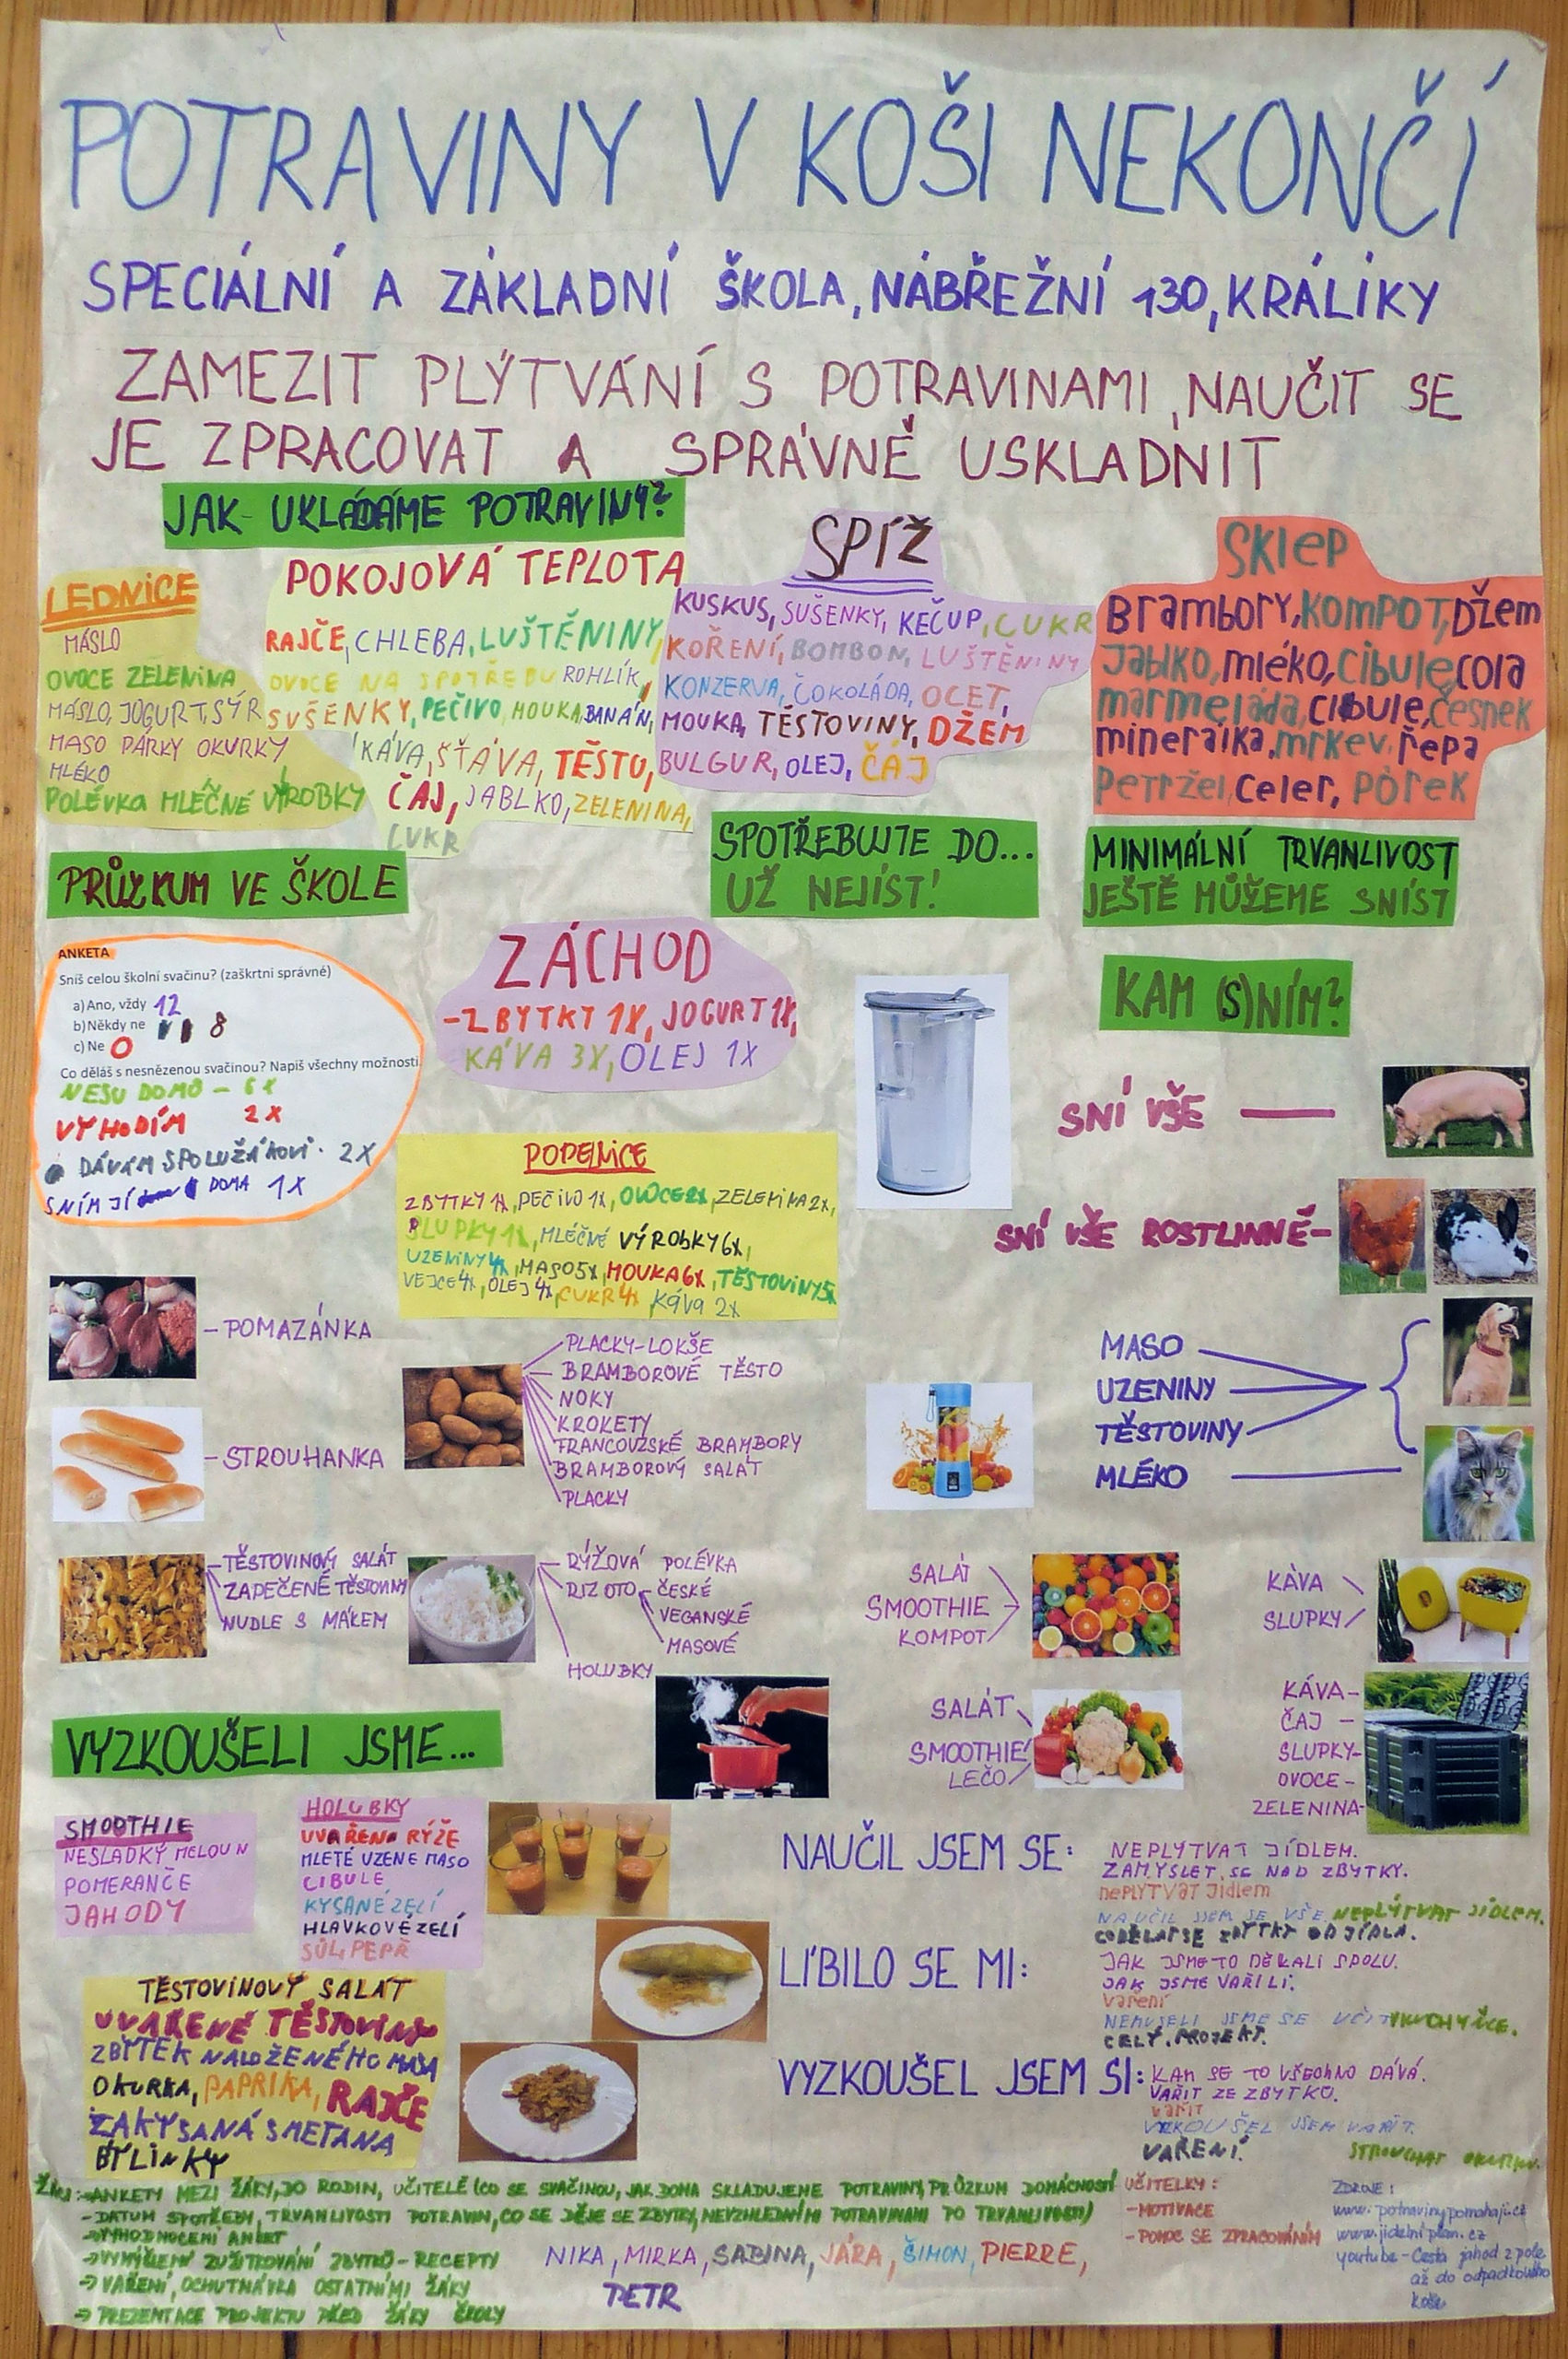 POTRAVINY V KOŠI NEKONČÍ
SPECIÁLNÍ A ZÁKLADNÍ ŠKOLA, NÁBŘEŽNÍ 130, KRÁLÍKY
ZAMEZIT PLÝTVÁNÍ S POTRAVINAMI, NAUČIT SE
JE ZPRACOVAT A SPRÁVNĚ USKLADNIT
JAK UKLÁDÁME POTRAVINY?
LEDNICE
MÁSLO
OVOCE ZELENINA
MÁSLO, JOGURT, SÝR
MASO PÁRKY OKURKY
MLÉKO
POLÉVKA MLÉČNÉ VÝROBKY
POKOJOVÁ TEPLOTA
RAJČE, CHLEBA, LUŠTĚNINY,
OVOCE NA SPOTŘEBU ROHLÍK,
SUŠENKY, PEČIVO, MOUKA, BANÁN,
KÁVA, ŠŤÁVA, TĚSTO,
ČAJ, JABLKO, ZELENINA,
CUKR
SPÍŽ
KUSKUS, SUŠENKY, KEČUP, CUKR
KOŘENÍ, BOMBON, LUŠTĚNINY
KONZERVA, ČOKOLÁDA, OCET,
MOUKA, TĚSTOVINY, DŽEM
BULGUR, OLEJ, ČAJ
SKlEP
Brambory, KOMPOT, Džem
Jablko, mléko, Cibule, cola
marmeláda, cibule, česnek
minerálka, mrkev, řepa
Petržel, Celer, Pórek
PRŮZKUM VE ŠKOLE
SPOTŘEBUJTE DO...
UŽ NEJÍST!
MINIMÁLNÍ TRVANLIVOST
JEŠTĚ MŮŽEME SNÍST
ANKETA
Sníš celou školní svačinu? (zaškrtni správné)
a) Ano, vždy 12
b) Někdy ne 8
c) Ne 0
Co děláš s nesnězenou svačinou? Napiš všechny možnosti.
NESU DOMŮ - 6X
VYHODÍM 2X
DÁVÁM SPOLUŽÁKOVI. 2X
SNÍM JÍ DOMA 1X
ZÁCHOD
-ZBYTKY 1X, JOGURT 1X,
KÁVA 3X, OLEJ 1X
KAM (S)NÍM?
SNÍ VŠE
SNÍ VŠE ROSTLINNÉ-
POPELNICE
ZBYTKY 1X, PEČIVO 1X, OVOCE 2X, ZELENINA 2X,
SLUPKY 1X, MLÉČNÉ VÝROBKY 6X,
UZENINY 4X, MASO 5X, MOUKA 6X, TĚSTOVINY 5X
VEJCE 4X, OLEJ 4X, CUKR 4X, KÁVA 2X
-POMAZÁNKA
-STROUHANKA
PLACKY-LOKŠE
BRAMBOROVÉ TĚSTO
NOKY
KROKETY
FRANCOUZSKÉ BRAMBORY
BRAMBOROVÝ SALÁT
PLACKY
MASO
UZENINY
TĚSTOVINY
MLÉKO
TĚSTOVINOVÝ SALÁT
ZAPEČENÉ TĚSTOVINY
NUDLE S MÁKEM
RÝŽOVÁ POLÉVKA
RIZOTO ČESKÉ
VEGANSKÉ
MASOVÉ
HOLUBKY
SALÁT
SMOOTHIE
KOMPOT
KÁVA
SLUPKY
SALÁT
SMOOTHIE
LEČO
KÁVA-
ČAJ -
SLUPKY-
OVOCE -
ZELENINA-
VYZKOUŠELI JSME...
SMOOTHIE
NESLADKÝ MELOUN
POMERANČE
JAHODY
HOLUBKY
UVAŘENA RÝŽE
MLETÉ UZENE MASO
CIBULE
KYSANÉ ZELÍ
HLAVKOVÉ ZELÍ
SŮL, PEPŘ
TĚSTOVINOVÝ SALÁT
UVAŘENÉ TĚSTOVINY
ZBYTEK NALOŽENÉHO MASA
OKURKA, PAPRIKA, RAJČE
ZAKYSANÁ SMETANA
BYLINKY
NAUČIL JSEM SE:
NEPLÝTVAT JÍDLEM.
ZAMYSLET SE NAD ZBYTKY.
nePLÝTVAT Jídlem
NAUČIL JSEM SE VŠE NEPLÝTVAT JÍDLEM.
CO DĚLAT SE ZBYTKY OD JÍDLA.
LÍBILO SE MI:
JAK JSME TO DĚLALI SPOLU.
JAK JSME VAŘILI.
Vaření
NEMUSELI JSME SE UČIT V KUCHYŇCE.
CELÝ PROJEKT.
VYZKOUŠEL JSEM SI:
KAM SE TO VŠECHNO DÁVÁ.
VAŘIT ZE ZBYTKŮ.
Vařit
VYZKOUŠEL JSEM VAŘIT.
VAŘENÍ.
ŽÁCI: -ANKETY MEZI ŽÁKY, DO RODIN, UČITELÉ (CO SE SVAČINOU, JAK DOMA SKLADUJEME POTRAVINY, PRŮZKUM DOMÁCNOSTÍ
-DATUM SPOTŘEBY, TRVANLIVOSTI POTRAVIN, CO SE DĚJE SE ZBYTKY, NEVZHLEDNÝMI POTRAVINAMI PO TRVANLIVOSTI)
-VYHODNOCENÍ ANKET
->VYMÝŠLENÍ ZUŽITKOVÁNÍ ZBYTKŮ - RECEPTY
-> VAŘENÍ, OCHUTNÁVKA OSTATNÍMI ŽÁKY
-> PREZENTACE PROJEKTU PŘED ŽÁKY ŠKOLY
NIKA, MIRKA, SABINA, JÁRA, ŠIMON, PIERRE,
PETR
UČITELKY:
-MOTIVACE
-POMOC SE ZPRACOVÁNÍM
ZDROJE:
www.potravinypomahaji.cz
www.jidelniplan.cz
youtube - Cesta jahod z pole
až do odpadkového
koše